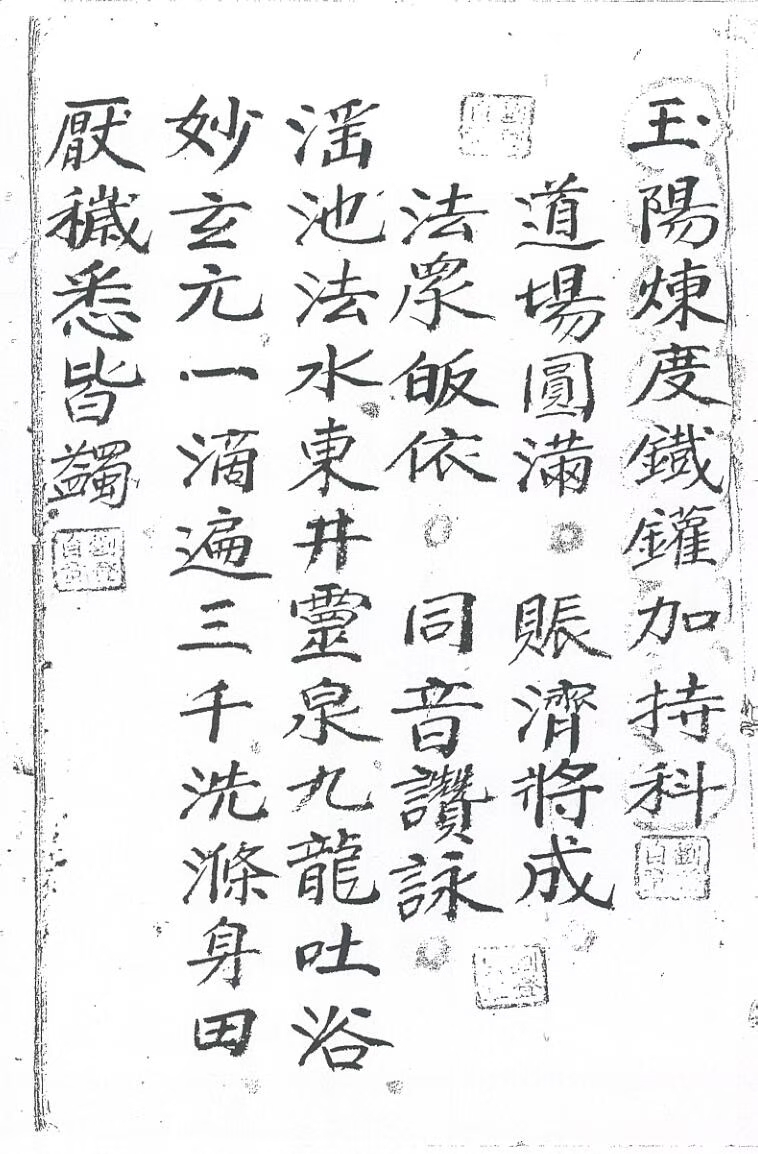 玉陽煉度鐵鑵加持科
道場圓滿 賬濟將成
法眾皈依 同音讚詠
滛池法水東井靈泉九龍吐浴
妙玄元一滴遍三千洗滌身田
厭穢悉皆蠲